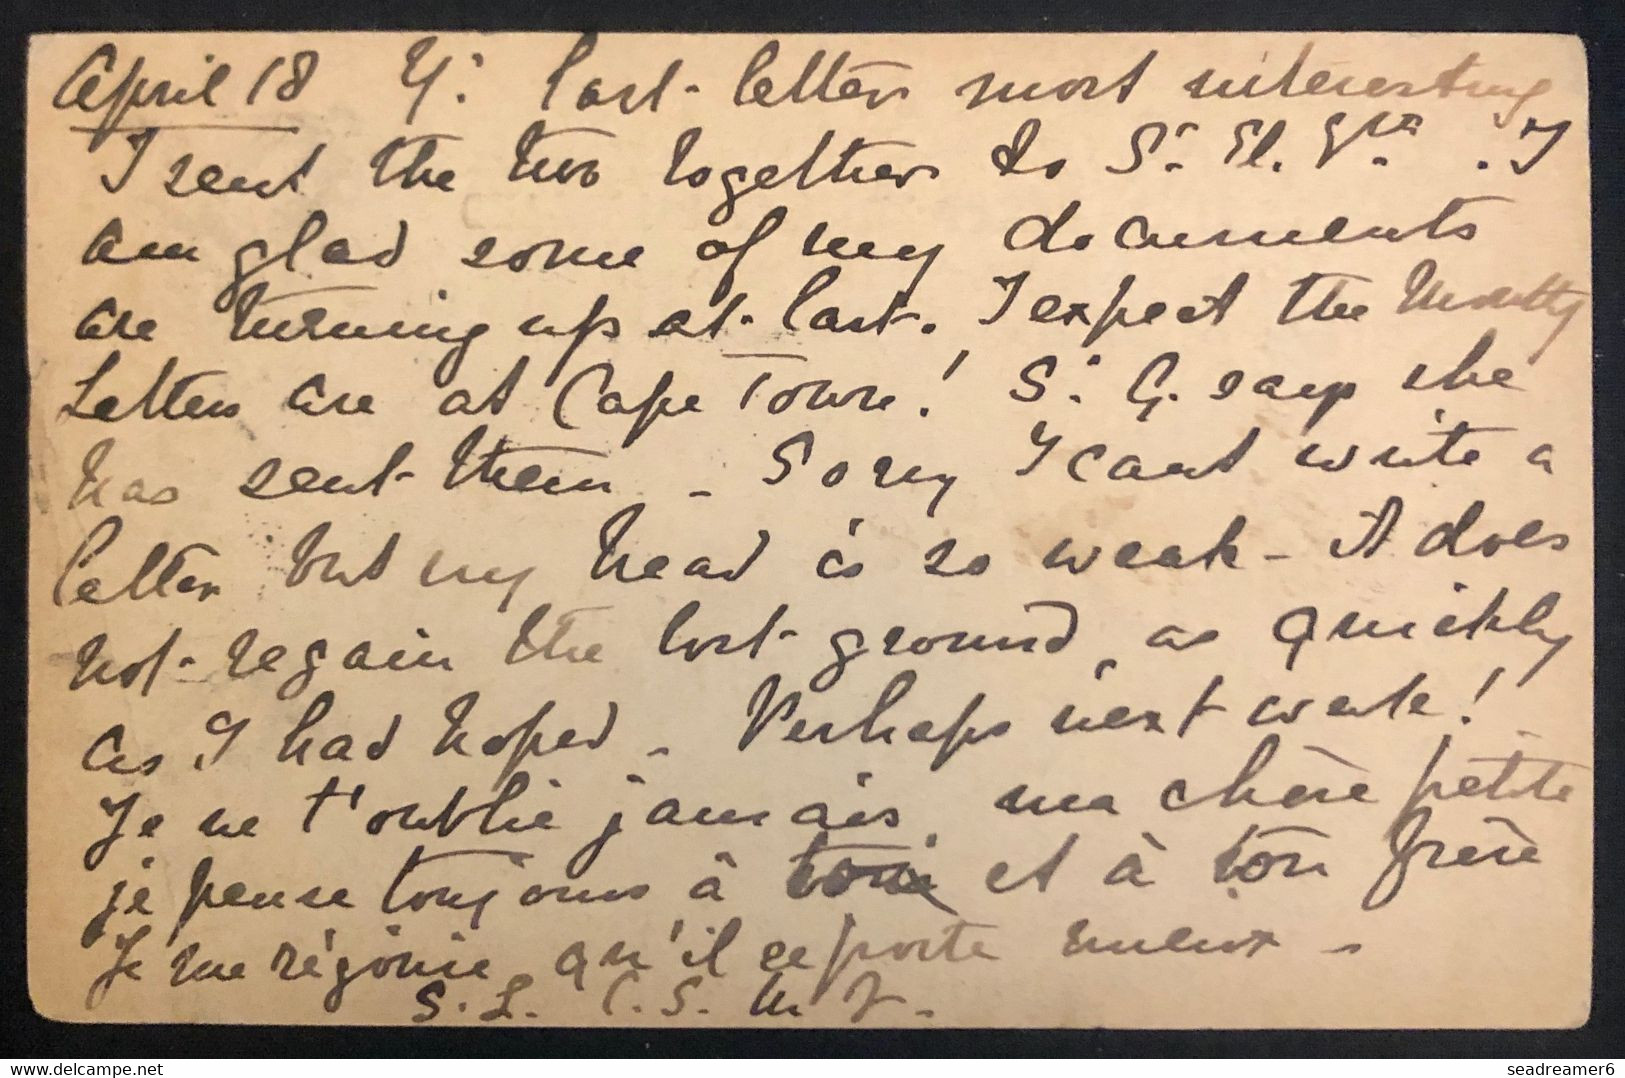 April 18 Yr last letter most interesting
I sent the two together to Sr. El. . I
am glad some of my documents
are turning up at last. I expect the Monthly
Letters are at Cape Town! Sr G. says she
has sent them - Sorry I cant write a
letter but my head is so weak - It does
not regain the lost ground, as quickly
as I had hoped - Perhaps next week!
Je ne t'oublie jamais, ma chère petite
je pense toujours à toi et à ton frère
Je me réjouie qu'il se porte mieux -
S. L. C. S. M. V.
www.delcampe.net
seadreamer6